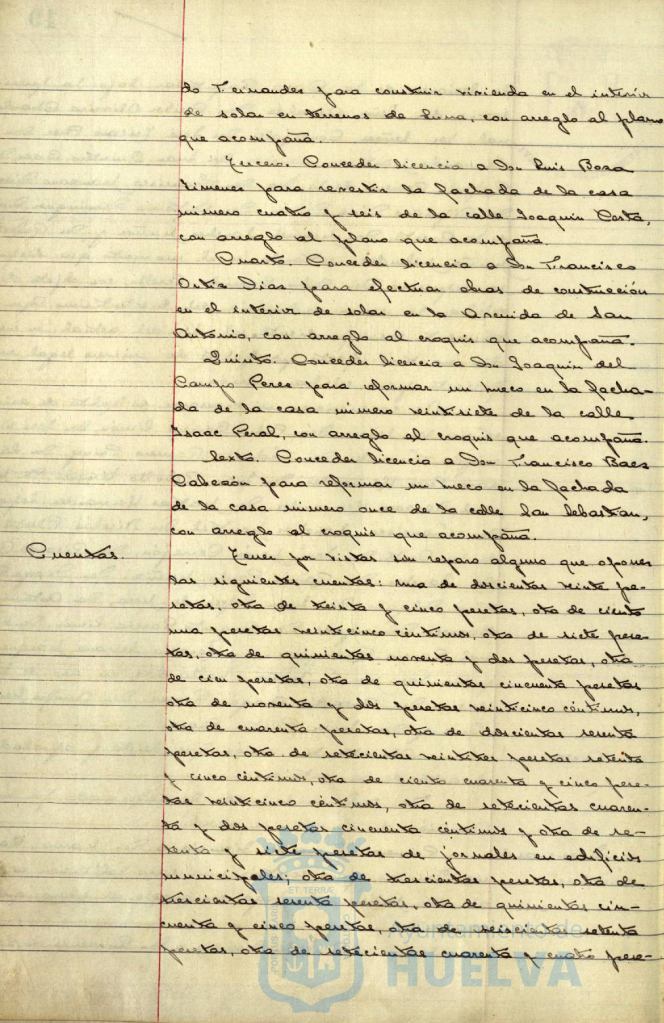 do Fernandes para construir vivienda en el interior
de solar en terrenos de Luna, con arreglo al plano
que acompaña.
Tercero. Conceder licencia a Don Luis Boza
Jimenes para revestir la fachada de la casa
número cuatro y seis de la calle Joaquín Costa,
con arreglo al plano que acompaña.
Cuarto. Conceder licencia a Don Francisco
Ortiz Dias para efectuar obras de construcción
en el interior de solar en la Avenida de San
Antonio, con arreglo al croquis que acompaña.
Quinto. Conceder licencia a Don Joaquín del
Campo Peres para reformar un hueco en la facha-
da de la casa número veintisiete de la calle
Isaac Peral, con arreglo al croquis que acompaña.
Sexto. Conceder licencia a Don Francisco Baes
para reformar un hueco en la fachada
de la casa número once de la calle San Sebastián,
con arreglo al croquis que acompaña.
Cuentas.
Tener por vistas sin reparo alguno que oponer
las siguientes cuentas: una de doscientas veinte pe-
setas, otra de treinta y cinco pesetas, otra de ciento
una pesetas veinticinco céntimos, otra de siete pese-
tas, otra de quinientas noventa y dos pesetas, otra
de cien pesetas, otra de quinientas cincuenta pesetas
otra de noventa y dos pesetas veinticinco céntimos,
otra de cuarenta pesetas, otra de doscientas sesenta
pesetas, otra de setecientas veintitres pesetas setenta
y cinco céntimos, otra de ciento cuarenta y cinco pese-
tas veinticinco céntimos, otra de setecientas cuaren-
ta y dos pesetas cincuenta céntimos y otra de se-
tenta y siete pesetas de jornales en edificios
municipales; otra de trescientas pesetas, otra de
trescientas sesenta pesetas, otra de quinientas cin-
cuenta y cinco pesetas, otra de seiscientas setenta
pesetas, otra de setecientas cuarenta y cuatro pese-
HUELVA